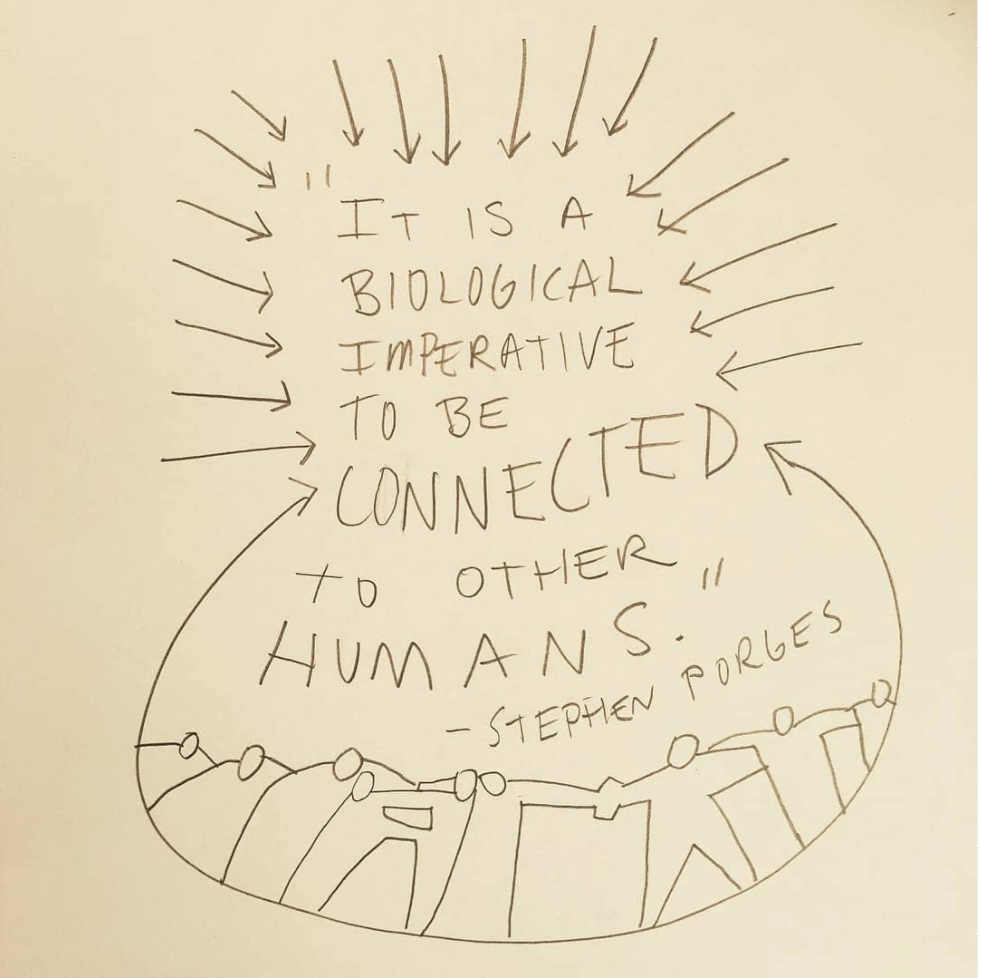 "IT IS A
BIOLOGICAL
IMPERATIVE
TO BE
CONNECTED
TO OTHER"
HUMANS.
-STEPHEN PORGES